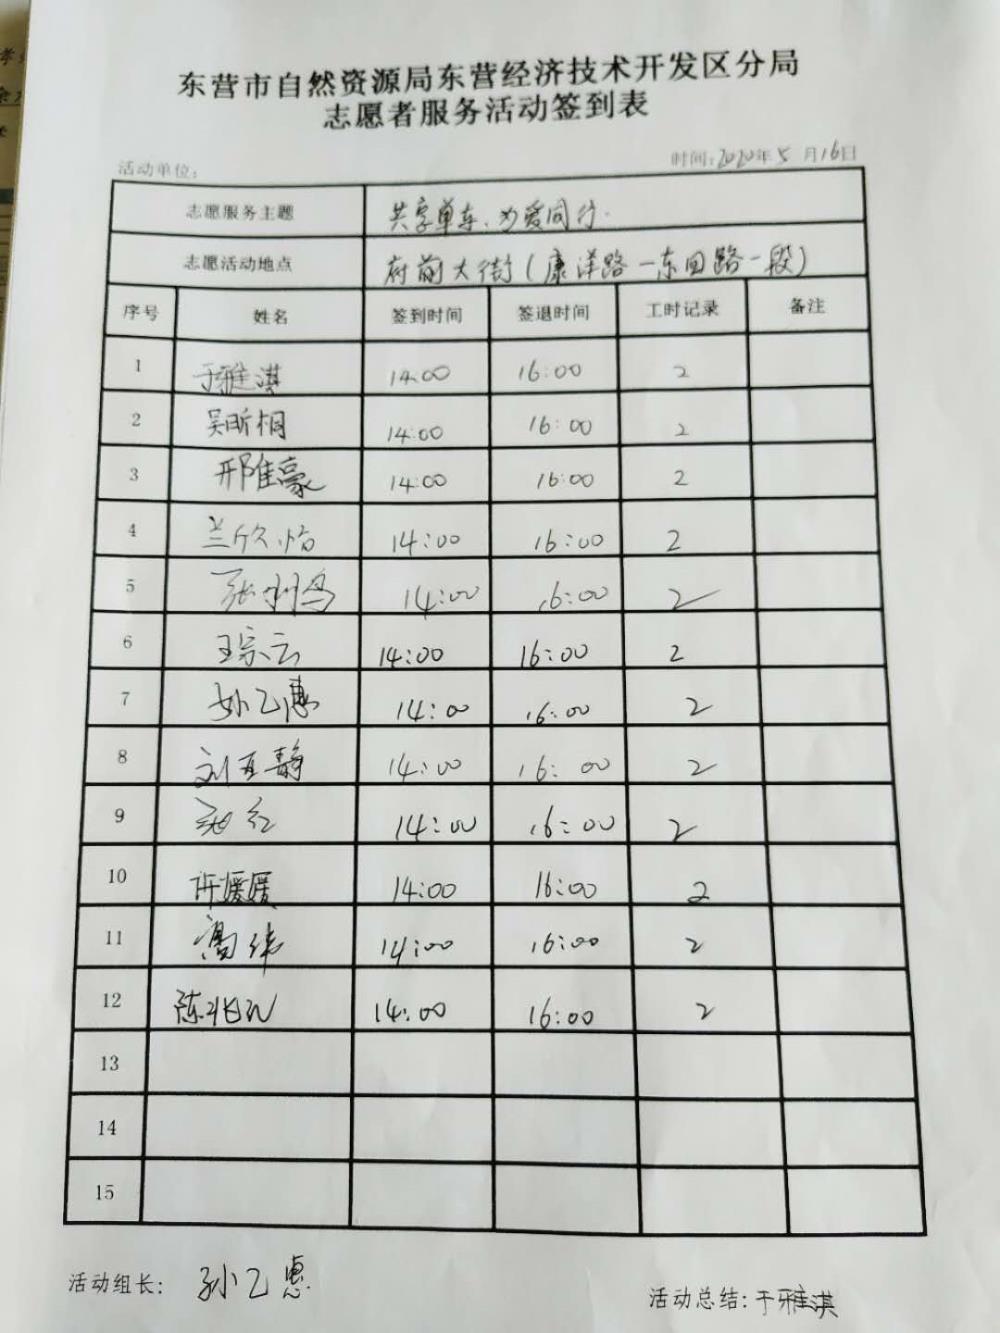 东营市自然资源局东营经济技术开发区分局
志愿者服务活动签到表
活动单位: 时间:2020年5月16日
志愿服务主题 共享单车、为爱同行.
志愿活动地点 府前大街(康洋路一东四路一段)
序号 姓名 签到时间 签退时间 工时记录 备注
1 于雅淇 14:00 16:00 2
2 吴昕桐 14:00 16:00 2
3 邢唯豪 14:00 16:00 2
4 兰欣怡 14:00 16:00 2
5 张 14:00 16:00 2
6 王宗云 14:00 16:00 2
7 孙乙惠 14:00 16:00 2
8 刘亚静 14:00 16:00 2
9 红 14:00 16:00 2
10 许媛媛 14:00 16:00 2
11 高伟 14:00 16:00 2
12 陈兆 14:00 16:00 2
13
14
15
活动组长: 孙乙惠 活动总结: 于雅淇